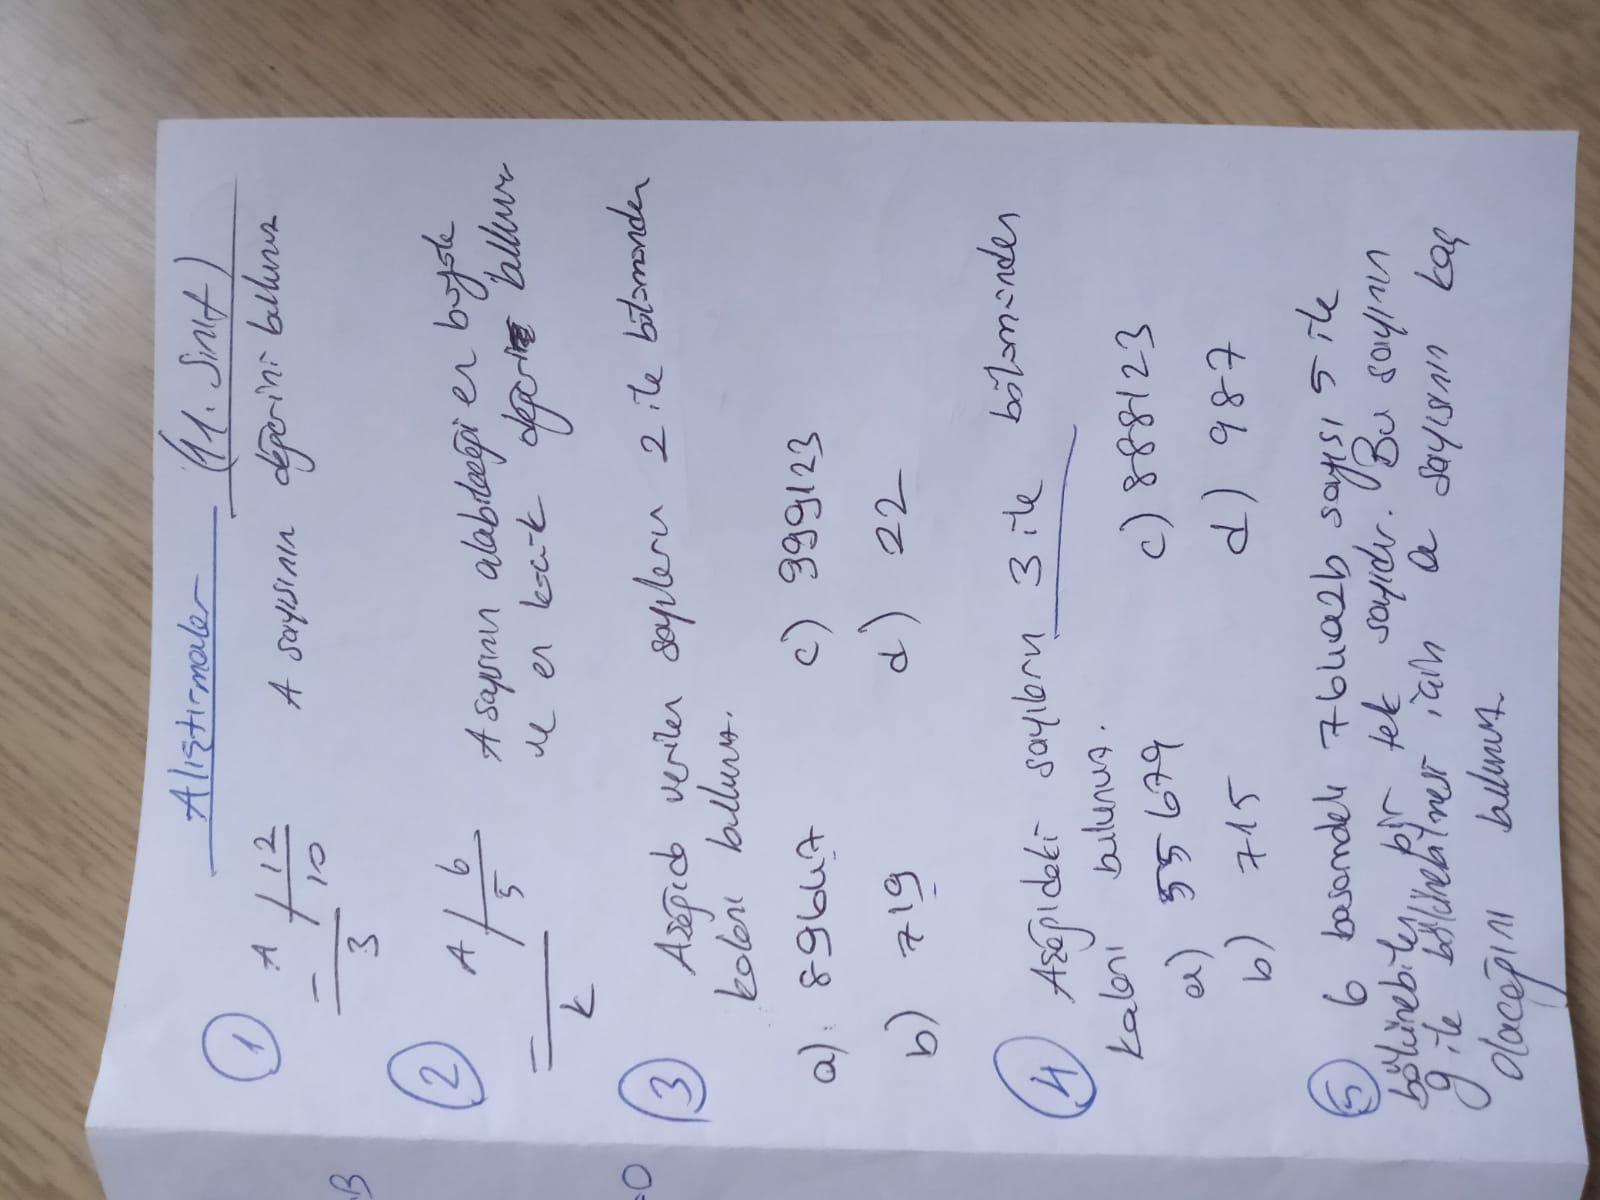 Alıştırmalar (11. Sınıf)
1 A | 12 A sayısının değerini bulunuz
10
3
2 A | 6 A sayısının alabileceği en büyük
5 ve en küçük değerini bulunuz
k
3 Aşağıda verilen sayıların 2 ile bölümünden
kalanı bulunuz.
a) 89647 c) 999123
b) 719 d) 22
4 Aşağıdaki sayıların 3 ile bölümünden
kalanı bulunuz.
a) 55679 c) 888123
b) 715 d) 987
5 6 basamaklı 764a2b sayısı 5 ile
bölünebilen bir tek sayıdır. Bu sayının
9 ile bölünebilmesi için a sayısının kaç
olacağını bulunuz
B
0